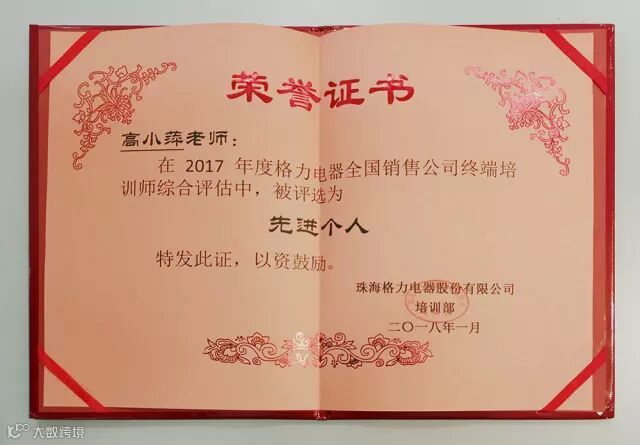 荣誉证书
高小萍老师：
在 2017 年度格力电器全国销售公司终端培
训师综合评估中，被评选为
先进个人
特发此证，以资鼓励。
珠海格力电器股份有限公司
培训部
二〇一八年一月
大数跨境